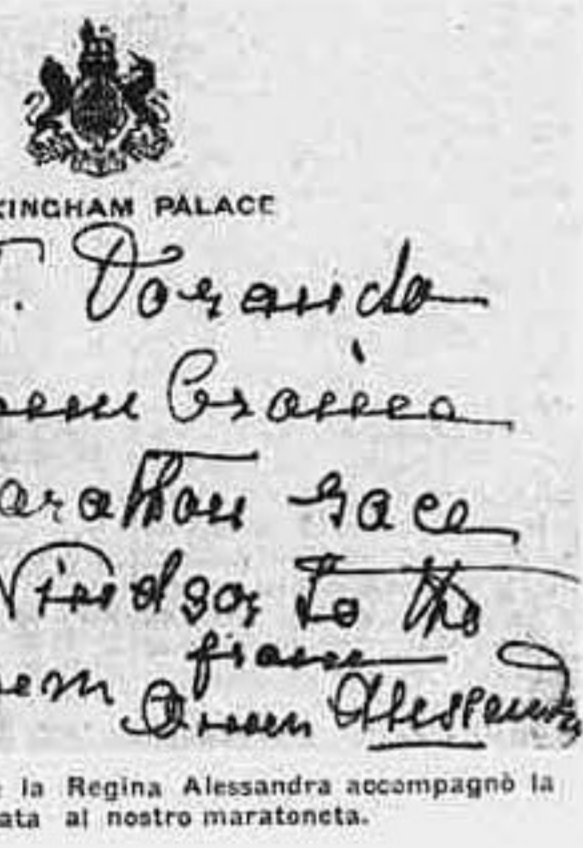 KINGHAM PALACE
T. Dorando
Marathon race
Windsor to the
from
Queen Alessandra
e la Regina Alessandra accompagnò la
ata al nostro maratoneta.